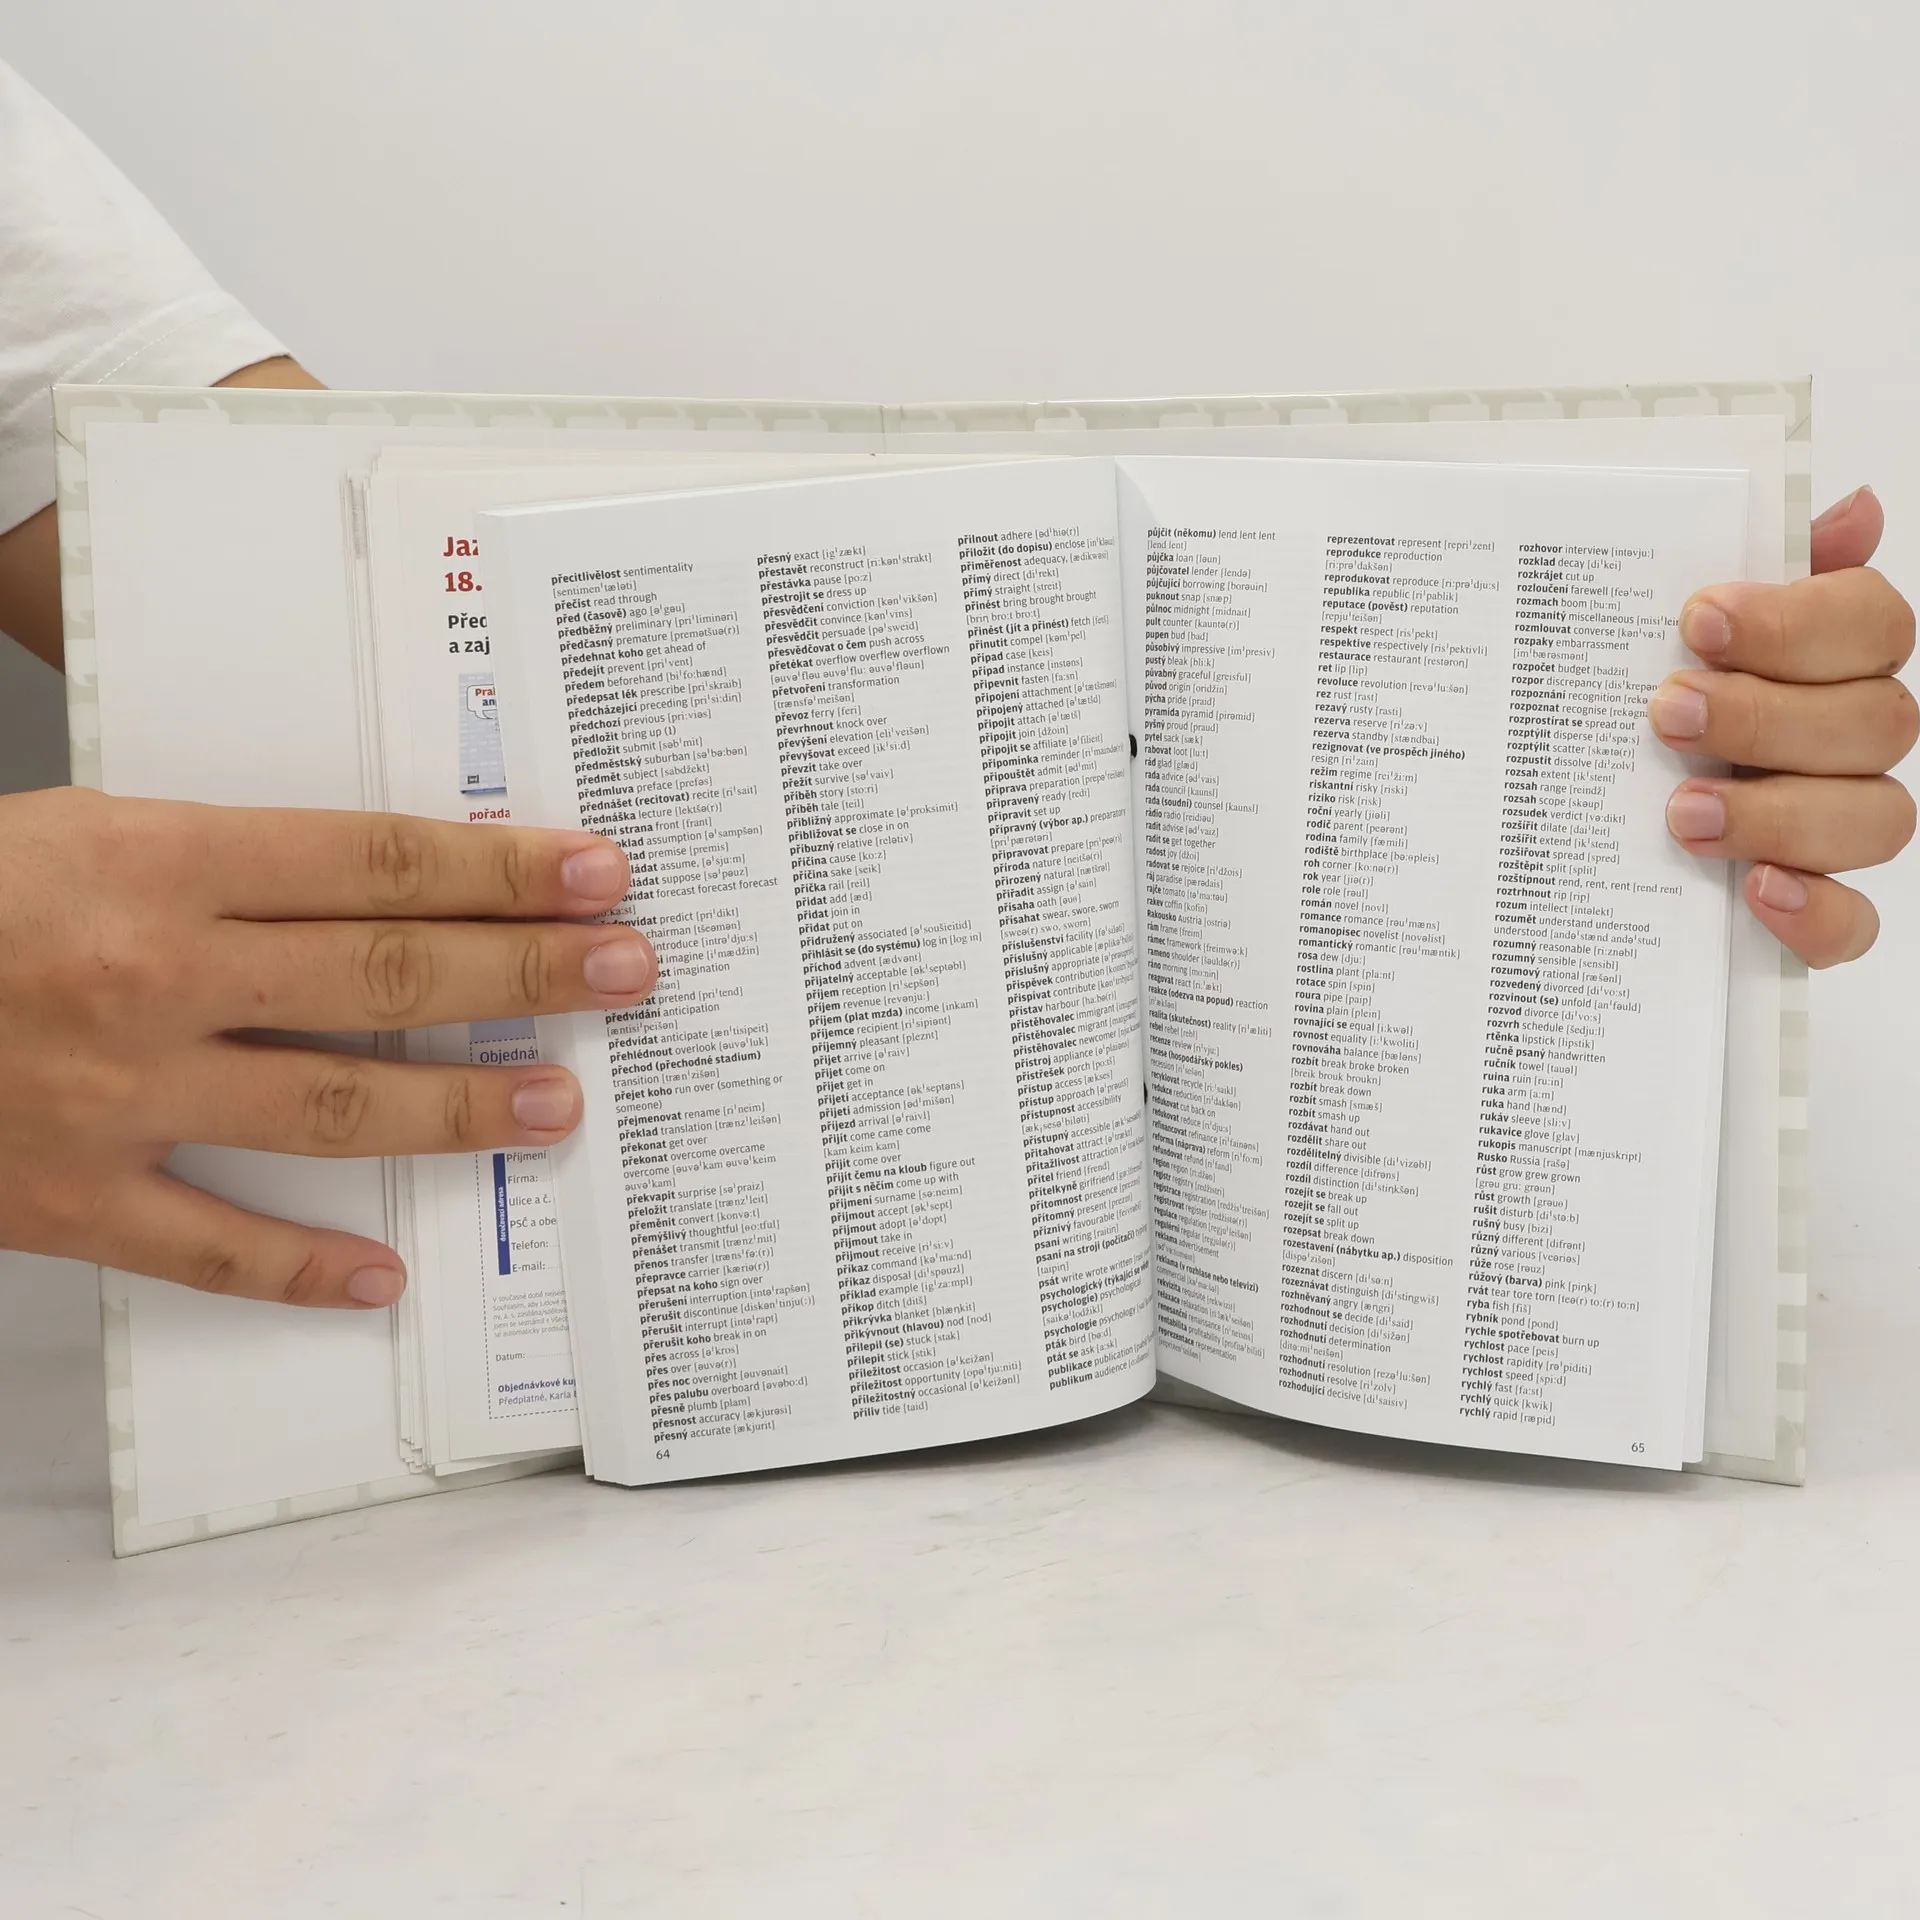 Jaz
18.
Před
a zaj
Prak
ang
pořada
Objednáv
Příjmení
doručovací adresa
Firma:
Ulice a č.
PSČ a obe
Telefon:
E-mail:
Datum:
Objednávkové ku
Předplatné, Karla
přecitlivělost sentimentality
[sentimenˈtæləti]
přečíst read through
před (časově) ago [əˈgəu]
předběžný preliminary [priˈliminəri]
předčasný premature [premətšuə(r)]
předehnat koho get ahead of
předejít prevent [priˈvent]
předem beforehand [biˈfo:hænd]
předepsat lék prescribe [priˈskraib]
předcházející preceding [priˈsi:din]
předchozí previous [pri:viəs]
předložit bring up (1)
předložit submit [səbˈmit]
předměstský suburban [səˈbə:bən]
předmět subject [sabdžekt]
předmluva preface [prefəs]
přednášet (recitovat) recite [riˈsait]
přednáška lecture [lektšə(r)]
ední strana front [frant]
oklad assumption [əˈsampšən]
klad premise [premis]
ládat assume, [əˈsju:m]
kládat suppose [səˈpəuz]
ovídat forecast forecast forecast
dpovídat predict [priˈdikt]
chairman [tšeəmən]
introduce [intrəˈdju:s]
si imagine [iˈmædžin]
ost imagination
rat pretend [priˈtend]
předvídání anticipation
[æntisiˈpeišən]
předvídat anticipate [ænˈtisipeit]
přehlédnout overlook [əuvəˈluk]
přechod (přechodné stadium)
transition [trænˈzišən]
přejet koho run over (something or
someone)
přejmenovat rename [riˈneim]
překlad translation [trænzˈleišən]
překonat get over
překonat overcome overcame
overcome [əuvəˈkam əuvəˈkeim
əuvəˈkam]
překvapit surprise [səˈpraiz]
přeložit translate [trænzˈleit]
přeměnit convert [konvə:t]
přemýšlivý thoughtful [θo:tful]
přenášet transmit [trænzˈmit]
přenos transfer [trænsˈfə:(r)]
přepravce carrier [kæriə(r)]
přepsat na koho sign over
přerušení interruption [intəˈrapšən]
přerušit discontinue [diskənˈtinju(:)]
přerušit interrupt [intəˈrapt]
přerušit koho break in on
přes across [əˈkros]
přes over [əuvə(r)]
přes noc overnight [əuvənait]
přes palubu overboard [əvəbo:d]
přesně plumb [plam]
přesnost accuracy [ækjurəsi]
přesný accurate [ækjurit]
přesný exact [igˈzækt]
přestavět reconstruct [ri:kənˈstrakt]
přestávka pause [po:z]
přestrojit se dress up
přesvědčení conviction [kənˈvikšən]
přesvědčit convince [kənˈvins]
přesvědčit persuade [pəˈsweid]
přesvědčovat o čem push across
přetékat overflow overflew overflown
[əuvəˈfləu əuvəˈflu: əuvəˈfləun]
přetvoření transformation
[trænsfəˈmeišən]
převoz ferry [feri]
převrhnout knock over
převýšení elevation [eliˈveišən]
převyšovat exceed [ikˈsi:d]
převzít take over
přežít survive [səˈvaiv]
příběh story [sto:ri]
příběh tale [teil]
přibližný approximate [əˈproksimit]
přibližovat se close in on
příbuzný relative [relətiv]
příčina cause [ko:z]
příčina sake [seik]
příčka rail [reil]
přidat add [æd]
přidat join in
přidat put on
přidružený associated [əˈsoušieitid]
přihlásit se (do systému) log in [log in]
příchod advent [ædvənt]
přijatelný acceptable [əkˈseptəbl]
příjem reception [riˈsepšən]
příjem revenue [revənju:]
příjem (plat mzda) income [inkam]
příjemce recipient [riˈsipiənt]
příjemný pleasant [pleznt]
přijet arrive [əˈraiv]
přijet come on
přijet get in
přijetí acceptance [əkˈseptəns]
přijetí admission [ədˈmišən]
příjezd arrival [əˈraivl]
přijít come came come
[kam keim kam]
přijít come over
přijít čemu na kloub figure out
přijít s něčím come up with
příjmení surname [sə:neim]
přijmout accept [əkˈsept]
přijmout adopt [əˈdopt]
přijmout take in
přijmout receive [riˈsi:v]
příkaz command [kəˈma:nd]
příkaz disposal [diˈspəuzl]
příklad example [igˈza:mpl]
příkop ditch [ditš]
přikrývka blanket [blæŋkit]
přikývnout (hlavou) nod [nod]
přilepil (se) stuck [stak]
přilepit stick [stik]
příležitost occasion [əˈkeižən]
příležitost opportunity [opəˈtju:niti]
příležitostný occasional [əˈkeižənl]
příliv tide [taid]
přilnout adhere [ədˈhiə(r)]
přiložit (do dopisu) enclose
přiměřenost adequacy, [ædikwəsi]
přímý direct [diˈrekt]
přímý straight [streit]
přinést bring brought brought
[briŋ bro:t bro:t]
přinést (jít a přinést) fetch [feč]
přinutit compel [kəmˈpel]
případ case [keis]
případ instance [instəns]
připevnit fasten [fa:sn]
připojení attachment
připojený attached [əˈtætšd]
připojit attach [əˈtætš]
připojit join [džoin]
připojit se affiliate [əˈfilieit]
připomínka reminder
připouštět admit [ədˈmit]
příprava preparation
připravený ready [redi]
připravit set up
přípravný (výbor ap.) preparatory
[priˈpærətəri]
připravovat prepare [priˈpeə(r)]
příroda nature [neitšə(r)]
přirozený natural [nætšrəl]
přiřadit assign [əˈsain]
přísaha oath [əuθ]
přísahat swear, swore, sworn
[sweə(r) swo, sworn]
příslušenství facility [fəˈsiləti]
příslušný applicable
příslušný appropriate
příspěvek contribution
přispívat contribute
přístav harbour [ha:bə(r)]
přistěhovalec immigrant
přistěhovalec migrant
přistěhovalec newcomer
přístroj appliance
přístřešek porch [po:tš]
přístup access [ækses]
přístup approach [əˈprəutš]
přístupnost accessibility
[ækˌsesəˈbiləti]
přístupný accessible
přitahovat attract [əˈtrækt]
přitažlivost attraction
přítel friend [frend]
přítelkyně girlfriend
přítomnost presence
přítomný present
příznivý favourable
psaní writing [raitin]
psaní na stroji (počítači) typing
[taipin]
psát write wrote written
psychologický (týkající se
psychologie) psychological
[saikəˈlodžikl]
psychologie psychology
pták bird [bə:d]
ptát se ask [a:sk]
publikace publication
publikum audience
64
půjčit (někomu) lend lent lent
[lend lent]
půjčka loan [ləun]
půjčovatel lender [lendə]
půjčující borrowing [borəuin]
puknout snap [snæp]
půlnoc midnight [midnait]
pult counter [kauntə(r)]
pupen bud [bad]
působivý impressive [imˈpresiv]
pustý bleak [bli:k]
půvabný graceful [greisful]
původ origin [oridžin]
pýcha pride [praid]
pyramida pyramid [pirəmid]
pyšný proud [praud]
pytel sack [sæk]
rabovat loot [lu:t]
rád glad [glæd]
rada advice [ədˈvais]
rada council [kaunsl]
rada (soudní) counsel [kaunsl]
rádio radio [reidiəu]
radit advise [ədˈvaiz]
radit se get together
radost joy [džoi]
radovat se rejoice [riˈdžois]
ráj paradise [pærədais]
rajče tomato [təˈma:təu]
rakev coffin [kofin]
Rakousko Austria [ostriə]
rám frame [freim]
rámec framework [freimwə:k]
rameno shoulder [šəuldə(r)]
ráno morning [mo:nin]
reagovat react [ri:ˈækt]
reakce (odezva na popud) reaction
[riˈækšən]
realita (skutečnost) reality [riˈæliti]
rebel rebel [rebl]
recenze review [riˈvju:]
recese (hospodářský pokles)
recession [riˈsešən]
recyklovat recycle [ri:ˈsaikl]
redukce reduction [riˈdakšən]
redukovat cut back on
redukovat reduce [riˈdju:s]
refinancovat refinance [riˈfainəns]
reforma (náprava) reform [riˈfo:m]
refundovat refund [riˈfand]
region region [ri:džən]
registr registry [redžistri]
registrace registration [redžisˈtreišən]
registrovat register [redžistə(r)]
regulace regulation [regjuˈleišən]
regulérní regular [regjulə(r)]
reklama advertisement
reklama (v rozhlase nebo televizi)
commercial [kəˈmə:šl]
rekvizita requisite [rekwizit]
relaxace relaxation
renesanční renaissance
rentabilita profitability
reprezentace representation
reprezentovat represent [repriˈzent]
reprodukce reproduction
[ri:prəˈdakšən]
reprodukovat reproduce [ri:prəˈdju:s]
republika republic [riˈpablik]
reputace (pověst) reputation
[repjuˈteišən]
respekt respect [risˈpekt]
respektive respectively [risˈpektivli]
restaurace restaurant [restəron]
ret lip [lip]
revoluce revolution [revəˈlu:šən]
rez rust [rast]
rezavý rusty [rasti]
rezerva reserve [riˈzə:v]
rezerva standby [stændbai]
rezignovat (ve prospěch jiného)
resign [riˈzain]
režim regime [reiˈži:m]
riskantní risky [riski]
riziko risk [risk]
roční yearly [jiəli]
rodič parent [peərənt]
rodina family [fæmili]
rodiště birthplace [bə:θpleis]
roh corner [ko:nə(r)]
rok year [jiə(r)]
role role [rəul]
román novel [novl]
romance romance [rəuˈmæns]
romanopisec novelist [novəlist]
romantický romantic [rəuˈmæntik]
rosa dew [dju:]
rostlina plant [pla:nt]
rotace spin [spin]
roura pipe [paip]
rovina plain [plein]
rovnající se equal [i:kwəl]
rovnost equality [i:ˈkwoliti]
rovnováha balance [bæləns]
rozbít break broke broken
[breik brouk broukn]
rozbít break down
rozbít smash [smæš]
rozbít smash up
rozdávat hand out
rozdělit share out
rozdělitelný divisible [diˈvizəbl]
rozdíl difference [difrəns]
rozdíl distinction [diˈstiŋkšən]
rozejít se break up
rozejít se fall out
rozejít se split up
rozepsat break down
rozestavení (nábytku ap.) disposition
[dispəˈzišən]
rozeznat discern [diˈsə:n]
rozeznávat distinguish [diˈstingwiš]
rozhněvaný angry [æŋgri]
rozhodnout se decide [diˈsaid]
rozhodnutí decision [diˈsižən]
rozhodnutí determination
[ditə:miˈneišən]
rozhodnutí resolution [rezəˈlu:šən]
rozhodnutí resolve [riˈzolv]
rozhodující decisive [diˈsaisiv]
rozhovor interview [intəvju:]
rozklad decay [diˈkei]
rozkrájet cut up
rozloučení farewell [feəˈwel]
rozmach boom [bu:m]
rozmanitý miscellaneous
rozmlouvat converse [kənˈvə:s]
rozpaky embarrassment
[imˈbærəsmənt]
rozpočet budget [badžit]
rozpor discrepancy
rozpoznání recognition
rozpoznat recognise
rozprostírat se spread out
rozptýlit disperse [diˈspə:s]
rozptýlit scatter [skætə(r)]
rozpustit dissolve [diˈzolv]
rozsah extent [ikˈstent]
rozsah range [reindž]
rozsah scope [skəup]
rozsudek verdict [və:dikt]
rozšířit dilate [daiˈleit]
rozšířit extend [ikˈstend]
rozšiřovat spread [spred]
rozštěpit split [split]
rozštípnout rend, rent, rent [rend rent]
roztrhnout rip [rip]
rozum intellect [intəlekt]
rozumět understand understood
understood [andəˈstænd andəˈstud]
rozumný reasonable [ri:znəbl]
rozumný sensible [sensibl]
rozumový rational [ræšənl]
rozvedený divorced [diˈvo:st]
rozvinout (se) unfold [anˈfəuld]
rozvod divorce [diˈvo:s]
rozvrh schedule [šedju:l]
rtěnka lipstick [lipstik]
ručně psaný handwritten
ručník towel [tauəl]
ruina ruin [ru:in]
ruka arm [a:m]
ruka hand [hænd]
rukáv sleeve [sli:v]
rukavice glove [glav]
rukopis manuscript [mænjuskript]
Rusko Russia [rašə]
růst grow grew grown
[grəu gru: grəun]
růst growth [grəuθ]
rušit disturb [diˈstə:b]
rušný busy [bizi]
různý different [difrənt]
různý various [veəriəs]
růže rose [rəuz]
růžový (barva) pink [piŋk]
rvát tear tore torn [teə(r) to:(r) to:n]
ryba fish [fiš]
rybník pond [pond]
rychle spotřebovat burn up
rychlost pace [peis]
rychlost rapidity [rəˈpiditi]
rychlost speed [spi:d]
rychlý fast [fa:st]
rychlý quick [kwik]
rychlý rapid [ræpid]
65